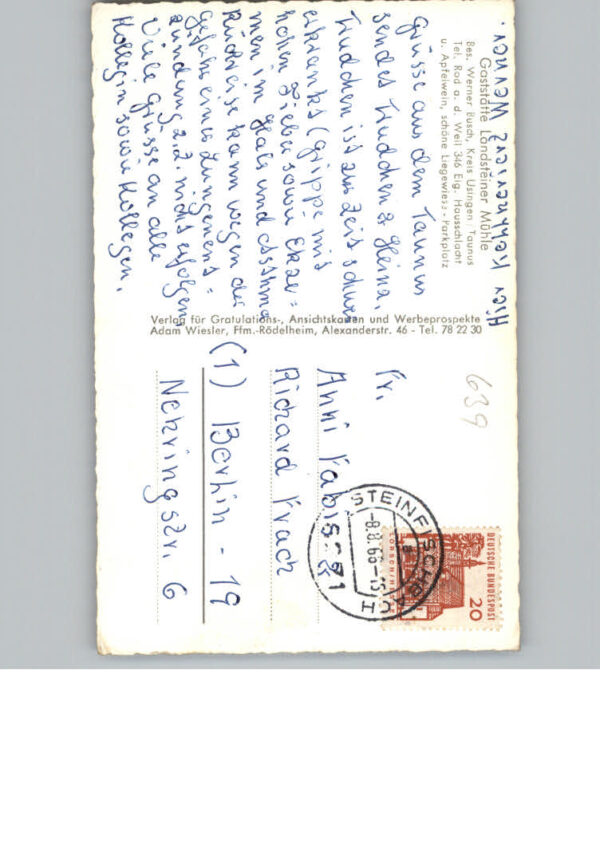 Gaststätte Landsteiner Mühle
Bes. Werner Busch, Kreis Usingen - Taunus
Tel. Rod a. d. Weil 346 Eig. Hausschlacht
u. Apfelwein, schöne Liegewiese - Parkplatz
Hier
waren wir
Grüsse aus dem Taunus
sendet Trudchen & Heina.
Trudchen ist zur Zeit schwer
erkrankt (Grippe mit
hohen Fieber sowie Ekze=
men im Hals und Asthma
Rückreise kann wegen der
Gefahr einer Lungenent=
zündung z,Z. nicht erfolgen
Viele Grüsse an alle
Kollegin sowie Kollegen.
Verlag für Gratulations-, Ansichtskarten und Werbeprospekte
Adam Wiesler, Ffm.-Rödelheim, Alexanderstr. 46 - Tel. 78 22 30
639
Fr.
Anni
Richard
(1) Berlin - 19
Nehringstr 6
STEINFISCHBACH
-8.8.66-15
DEUTSCHE BUNDESPOST
20
LORSCH/HESSEN